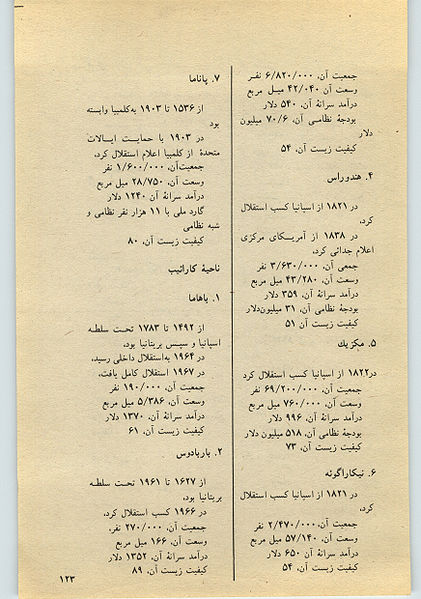 جمعیت آن، ۶/۸۲۰/۰۰۰ نفر
وسعت آن ۴۲/۰۴۰ میل مربع
درآمد سرانهٔ آن، ۵۴۰ دلار
بودجهٔ نظامی آن، ۷۰/۶ میلیون
دلار
کیفیت زیست آن، ۵۴
۴. هندوراس
در ۱۸۲۱ از اسپانیا کسب استقلال
کرد.
در ۱۸۳۸ از آمریکای مرکزی
اعلام جدائی کرد.
جمعی آن، ۳/۶۳۰/۰۰۰ نفر
وسعت آن، ۴۳/۲۸۰ میل مربع
درآمد سرانهٔ آن، ۳۵۹ دلار
بودجهٔ نظامی آن، ۳۱ میلیون‌دلار
کیفیت زیست آن ۵۱
۵. مکزیك
در۱۸۲۲ از اسپانیا کسب استقلال کرد
جمعیت آن، ۶۹/۲۰۰/۰۰۰ نفر
وسعت آن، ۷۶۰/۰۰۰ میل مربع
درآمد سرانهٔ آن، ۹۹۶ دلار
بودجهٔ نظامی آن، ۵۱۸ میلیون دلار
کیفیت زیست آن، ۷۳
۶. نیکاراگوئه
در ۱۸۲۱ از اسپانیا کسب استقلال
کرد.
جمعیت آن،۲/۴۷۰/۰۰۰ نفر
وسعت آن، ۵۷/۱۴۰ میل مربع
درآمد سرانهٔ آن ۶۵۰ دلار
کیفیت زیست آن، ۵۴
۷. پاناما
از ۱۵۳۶ تا ۱۹۰۳ به‌کلمبیا وابسته
بود
در ۱۹۰۳ با حمایت ایالات
متحدهٔ از کلمبیا اعلام استقلال کرد.
جمعیت‌آن، ۱/۶۰۰/۰۰۰ نفر
وسعت آن، ۲۸/۷۵۰ میل مربع
درآمد سرانهٔ آن ۱۲۴۰ دلار
گارد ملی با ۱۱ هزار نفر نظامی و
شبه نظامی
کیفیت زیست آن، ۸۰
ناحیهٔ کارائیب
۱. باهاما
از ۱۴۹۲ تا ۱۷۸۳ تحت سلطه
اسپانیا و سپس بریتانیا بود.
در ۱۹۶۴ به‌استقلال داخلی رسید.
در ۱۹۶۷ استقلال کامل یافت.
جمعیت آن، ۱۹۰/۰۰۰ نفر
وسعت آن، ۵/۳۸۶ میل مربع
درآمد سرانهٔ آن، ۱۳۷۰ دلار
کیفیت زیست آن، ۶۱
۲. باربادوس
از ۱۶۲۷ تا ۱۹۶۱ تحت سلطه
بریتانیا بود.
در ۱۹۶۶ کسب استقلال کرد.
جمعیت آن، ۲۷۰/۰۰۰ نفر.
وسعت آن، ۱۶۶ میل مربع
درآمد سرانهٔ آن، ۱۳۵۲ دلار
کیفیت زیست آن، ۸۹
۱۲۳